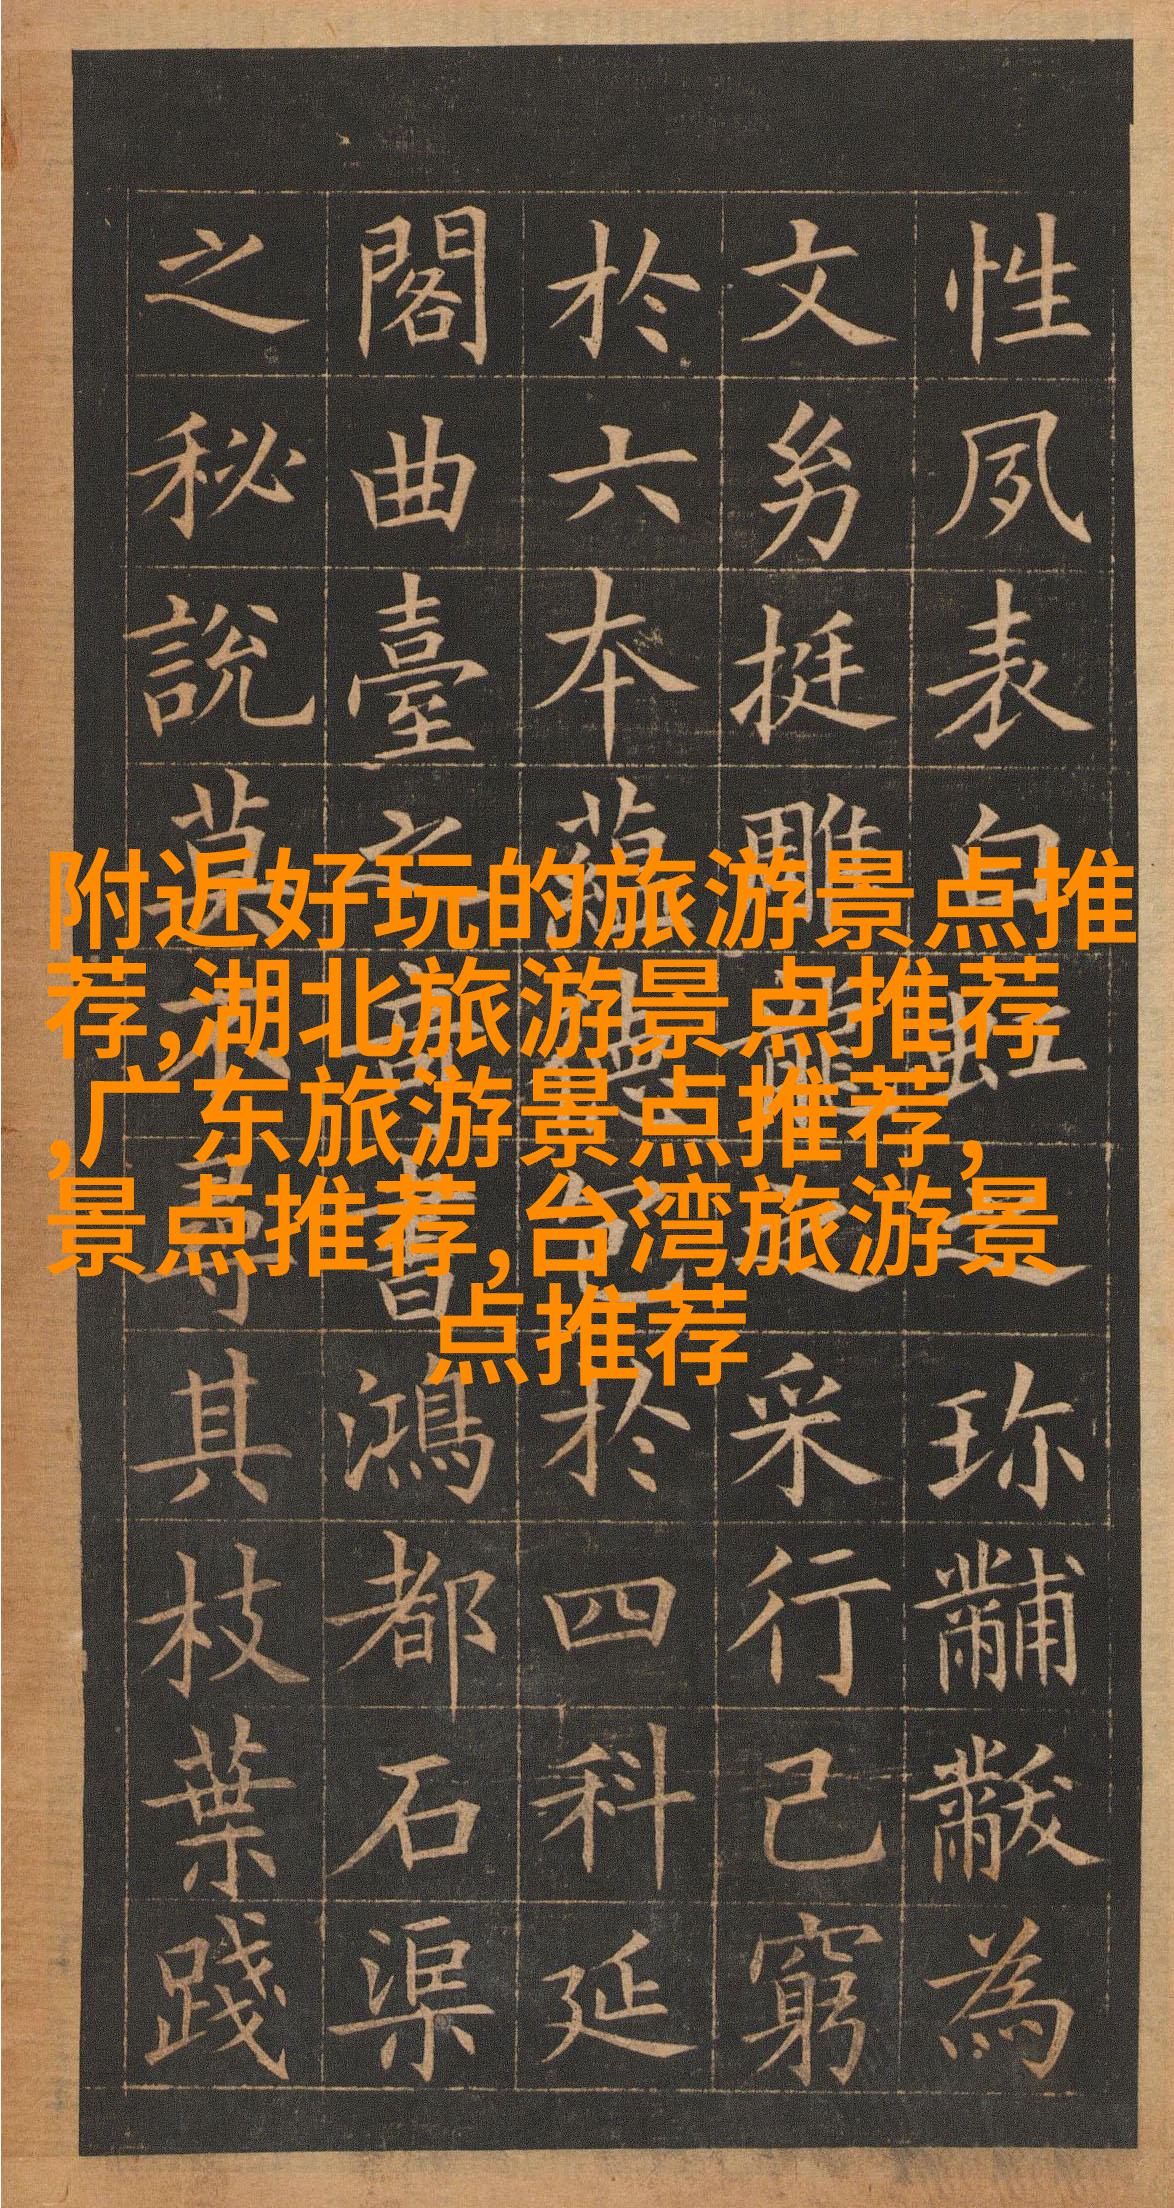 附近好玩的旅游景点推
荐,湖北旅游景点推荐
,广东旅游景点推荐,
景点推荐,台湾旅游景
点推荐
性夙表白虹之珍黼黻為
文挺雕龍之采行己窮
於六本蘊包於四科延
閣曲臺之奇書鴻都石渠
之秘說莫不尋其枝葉踐